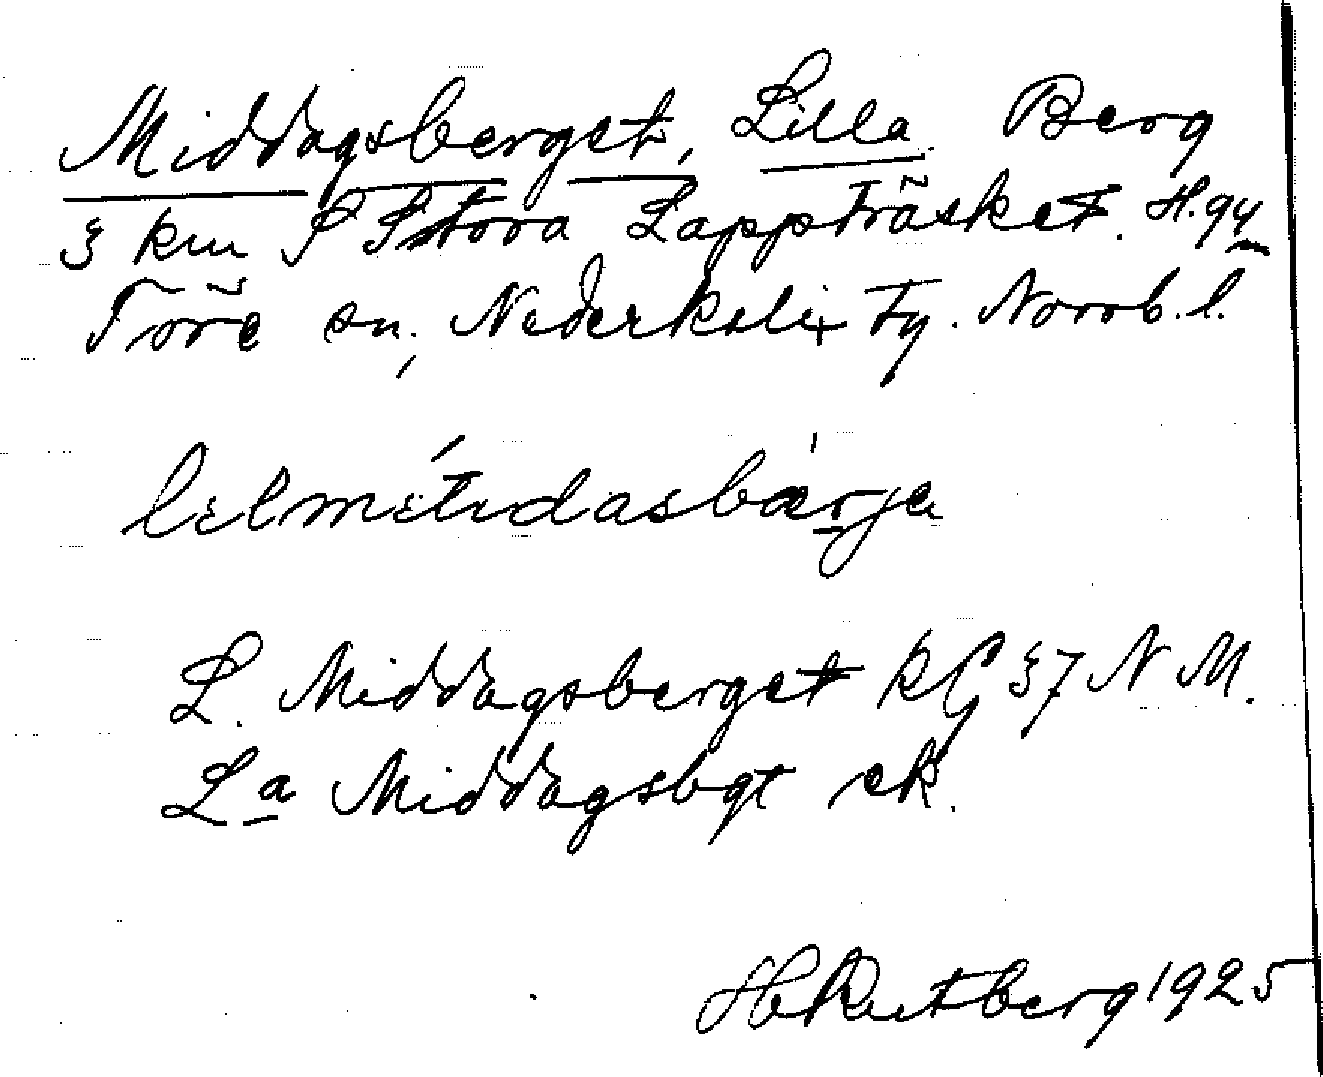 Middagsberget, Lilla. Berg
3 km S Stora Lappträsket. H. 94
Töre sn., Nederkalix tg. Norrb. l.
lɩlmétɩdasbærja
L. Middagsberget KG 37 N M.
La Middagsbgt ek.
H Rutberg 1925